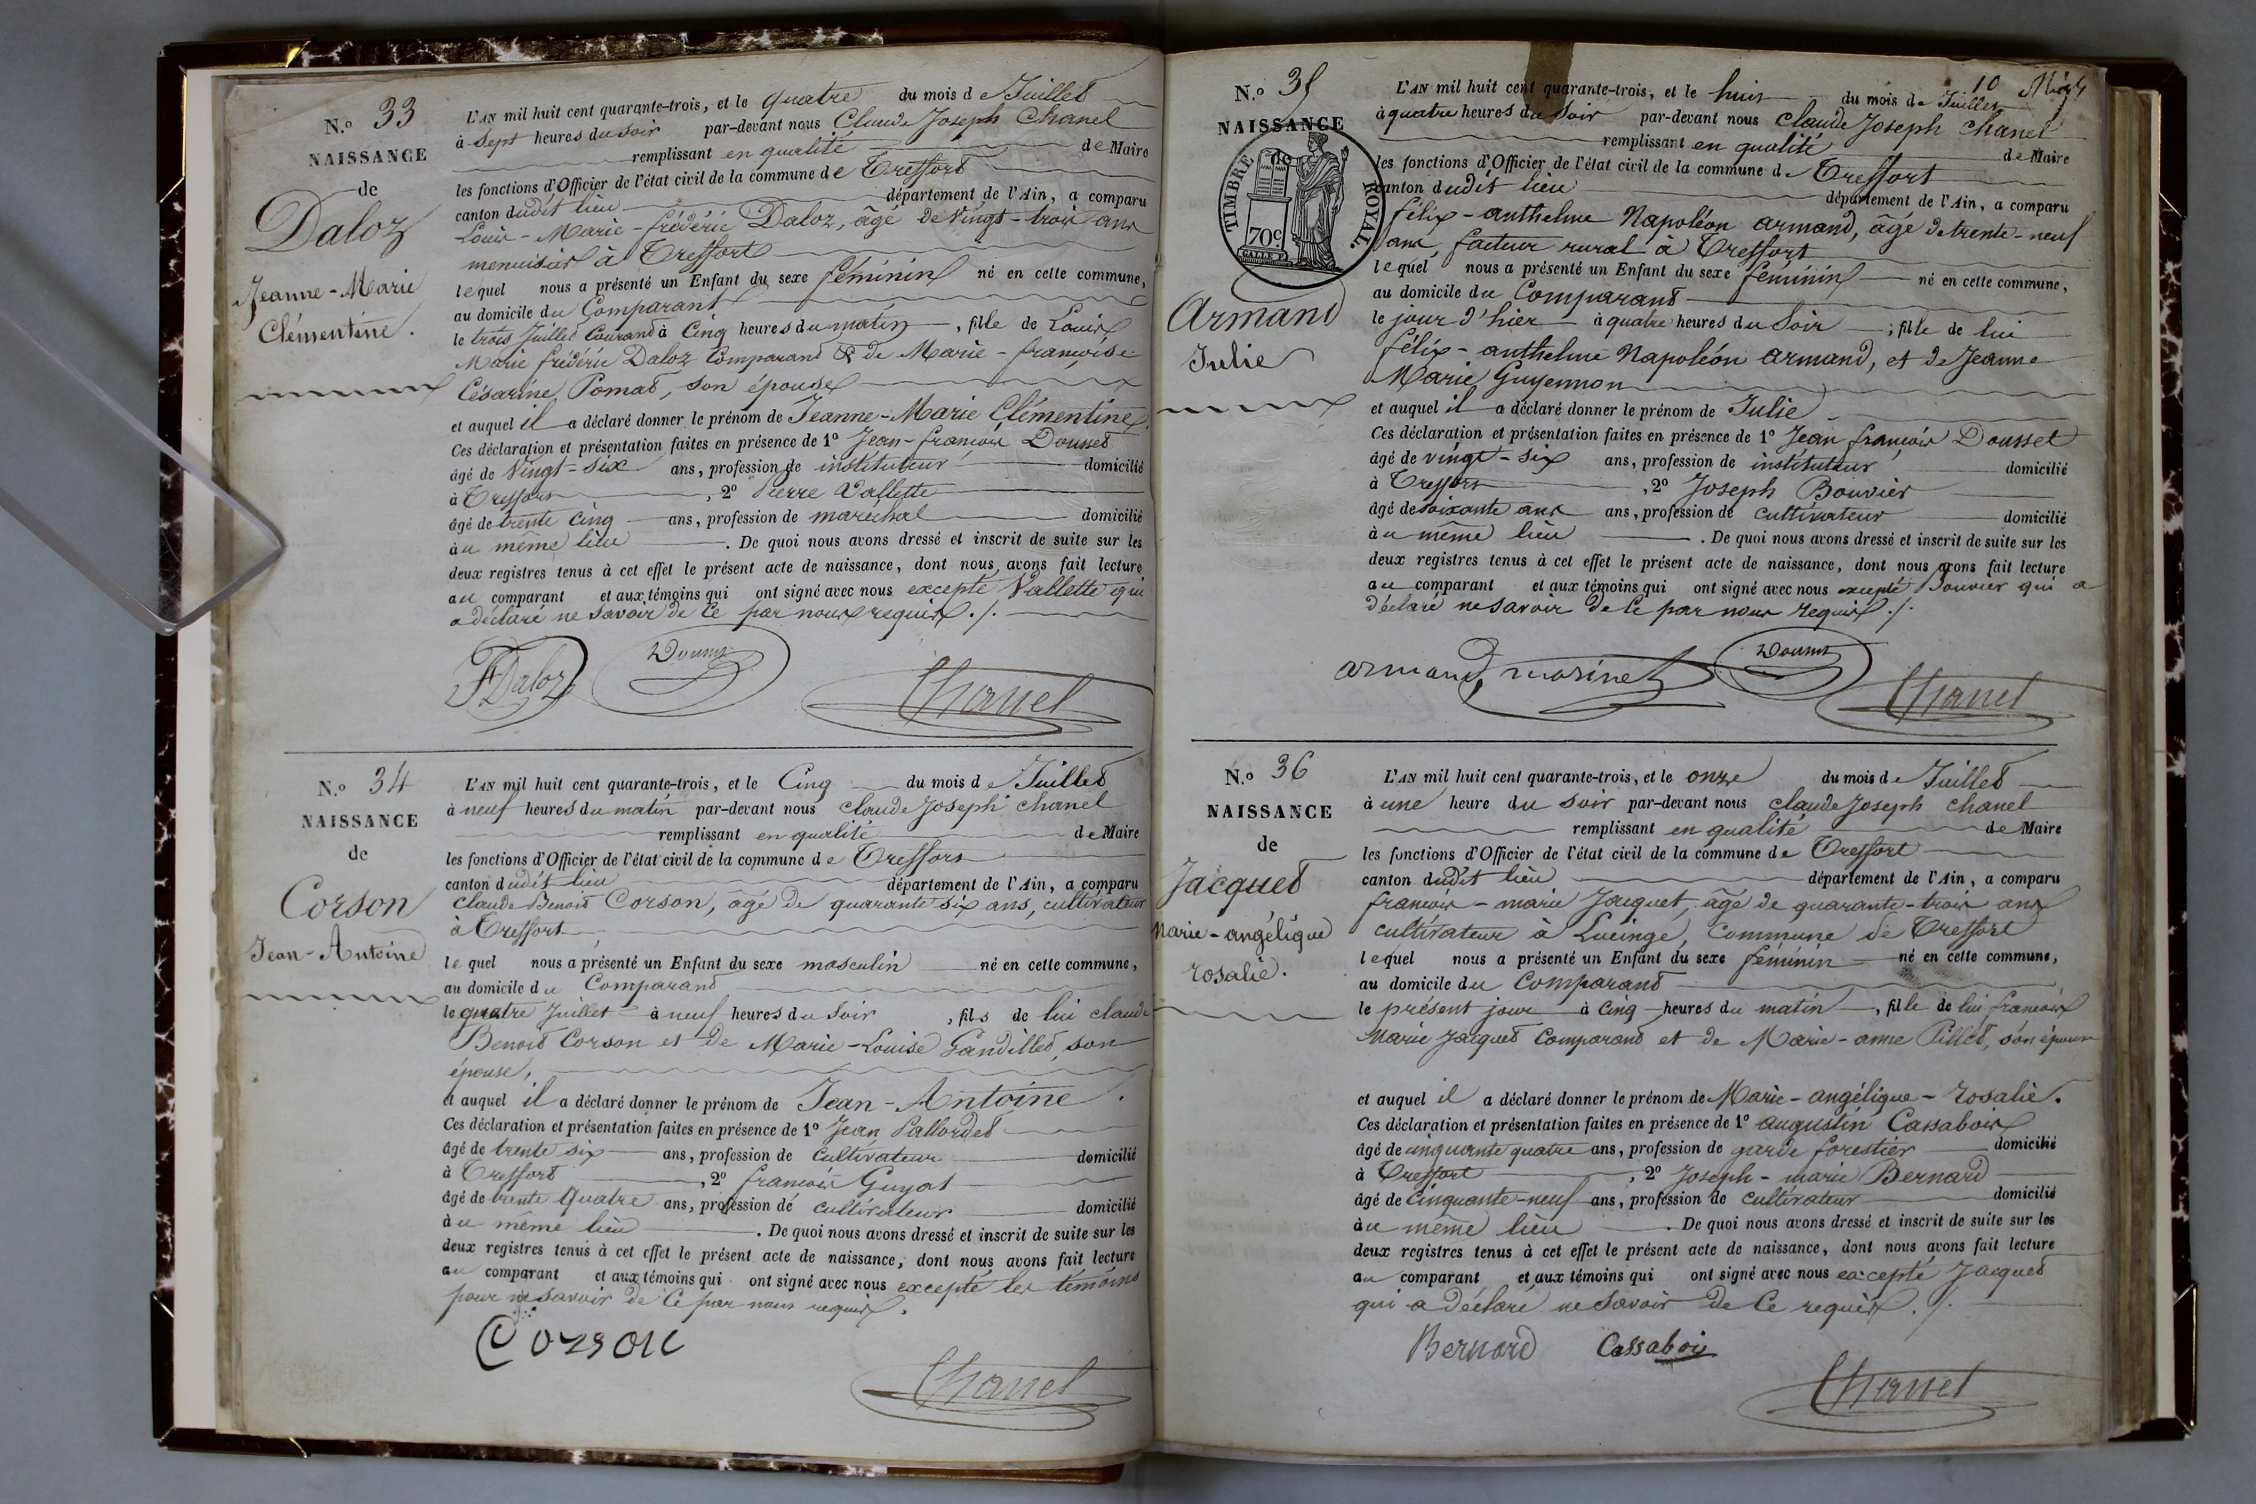 N.º 33
NAISSANCE
de
Daloz
Jeanne-Marie
Clémentine.
L'AN mil huit cent quarante-trois, et le quatre du mois de Juillet
à sept heures du soir par-devant nous Claude Joseph Chanel
remplissant en qualité de Maire
les fonctions d'Officier de l'état civil de la commune de Treffort
canton dudit lieu département de l'Ain, a comparu
Louis-Marie-frédéric Daloz, âgé de vingt-trois ans
menuisier à Treffort
lequel nous a présenté un Enfant du sexe féminin né en cette commune,
au domicile du Comparant
le trois Juillet Courant à Cinq heures du matin, fille de Louis
Marie frédéric Daloz Comparant & de Marie-françoise
Césarine Pomat, son épouse
et auquel il a déclaré donner le prénom de Jeanne-Marie Clémentine.
Ces déclaration et présentation faites en présence de 1º Jean-françois Dousset
âgé de vingt-six ans, profession de instituteur domicilié
à Treffort, 2º Pierre Vallette
âgé de trente cinq ans, profession de maréchal domicilié
au même lieu. De quoi nous avons dressé et inscrit de suite sur les
deux registres tenus à cet effet le présent acte de naissance, dont nous avons fait lecture
au comparant et aux témoins qui ont signé avec nous excepté Vallette qui
a déclaré ne savoir de ce par nous requis ./.
FDaloz Dousset Chanel
N.º 34
NAISSANCE
de
Corson
Jean-Antoine
L'AN mil huit cent quarante-trois, et le Cinq du mois de Juillet
à neuf heures du matin par-devant nous claude Joseph chanel
remplissant en qualité de Maire
les fonctions d'Officier de l'état civil de la commune de Treffort
canton dudit lieu département de l'Ain, a comparu
Claude Benoit Corson, âgé de quarante six ans, cultivateur
à Treffort,
lequel nous a présenté un Enfant du sexe masculin né en cette commune,
au domicile du Comparant
le quatre Juillet à neuf heures du soir, fils de lui claude
Benoit Corson et de Marie-Louise Gandillet, son
épouse,
et auquel il a déclaré donner le prénom de Jean-Antoine.
Ces déclaration et présentation faites en présence de 1º Jean Pallordet
âgé de trente six ans, profession de cultivateur domicilié
à Treffort, 2º françois Guyot
âgé de trente quatre ans, profession de cultivateur domicilié
au même lieu. De quoi nous avons dressé et inscrit de suite sur les
deux registres tenus à cet effet le présent acte de naissance, dont nous avons fait lecture
au comparant et aux témoins qui ont signé avec nous excepté les témoins
pour ne savoir de ce par nous requis.
Corson
Chanel
N.º 35
NAISSANCE
de
TIMBRE ROYAL.
70c.
Armand
Julie
10
L'AN mil huit cent quarante-trois, et le huit du mois de Juillet
à quatre heures du soir par-devant nous claude Joseph chanel
remplissant en qualité de Maire
les fonctions d'Officier de l'état civil de la commune de Treffort
canton dudit lieu département de l'Ain, a comparu
félix-anthelme Napoléon armand, âgé de trente-neuf
ans, facteur rural à Treffort
lequel nous a présenté un Enfant du sexe féminin né en cette commune,
au domicile du Comparant
le jour d'hier à quatre heures du soir, fille de lui
félix-anthelme Napoléon armand, et de Jeanne
Marie Guyennon
et auquel il a déclaré donner le prénom de Julie
Ces déclaration et présentation faites en présence de 1º Jean françois Dousset
âgé de vingt-six ans, profession de instituteur domicilié
à Treffort, 2º Joseph Bouvier
âgé de soixante ans ans, profession de cultivateur domicilié
au même lieu. De quoi nous avons dressé et inscrit de suite sur les
deux registres tenus à cet effet le présent acte de naissance, dont nous avons fait lecture
au comparant et aux témoins qui ont signé avec nous excepté Bouvier qui a
déclaré ne savoir de ce par nous requis ./.
armand Dousset Chanel
N.º 36
NAISSANCE
de
Jacquet
Marie-angélique
rosalie.
L'AN mil huit cent quarante-trois, et le onze du mois de Juillet
à une heure du soir par-devant nous claude Joseph chanel
remplissant en qualité de Maire
les fonctions d'Officier de l'état civil de la commune de Treffort
canton dudit lieu département de l'Ain, a comparu
françois-marie Jacquet, âgé de quarante-trois ans
cultivateur à Lucinge, commune de Treffort
lequel nous a présenté un Enfant du sexe féminin né en cette commune,
au domicile du Comparant
le présent jour à cinq heures du matin, fille de lui françois
Marie Jacquet Comparant et de Marie-anne Pillet, son épouse
et auquel il a déclaré donner le prénom de Marie-angélique-rosalie.
Ces déclaration et présentation faites en présence de 1º augustin Cassabois
âgé de cinquante quatre ans, profession de garde forestier domicilié
à Treffort, 2º Joseph-marie Bernard
âgé de Cinquante-neuf ans, profession de cultivateur domicilié
au même lieu. De quoi nous avons dressé et inscrit de suite sur les
deux registres tenus à cet effet le présent acte de naissance, dont nous avons fait lecture
au comparant et aux témoins qui ont signé avec nous excepté Jacquet
qui a déclaré ne savoir de ce requis ./.
Bernard Cassabois
Chanel